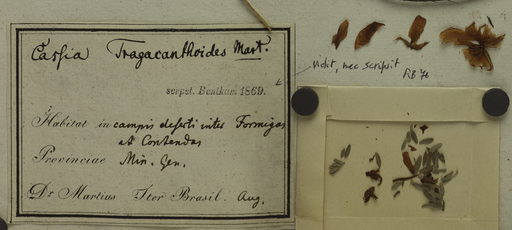 Cassia Tragacanthoides Mart.
scrpst. Bentham 1869.
Habitat in campis deserti inter Formigas
et Contendas
Provinciae Min. Gen.
Dr Martius Iter Brasil. Aug.
vidit, nec scripsit
RB